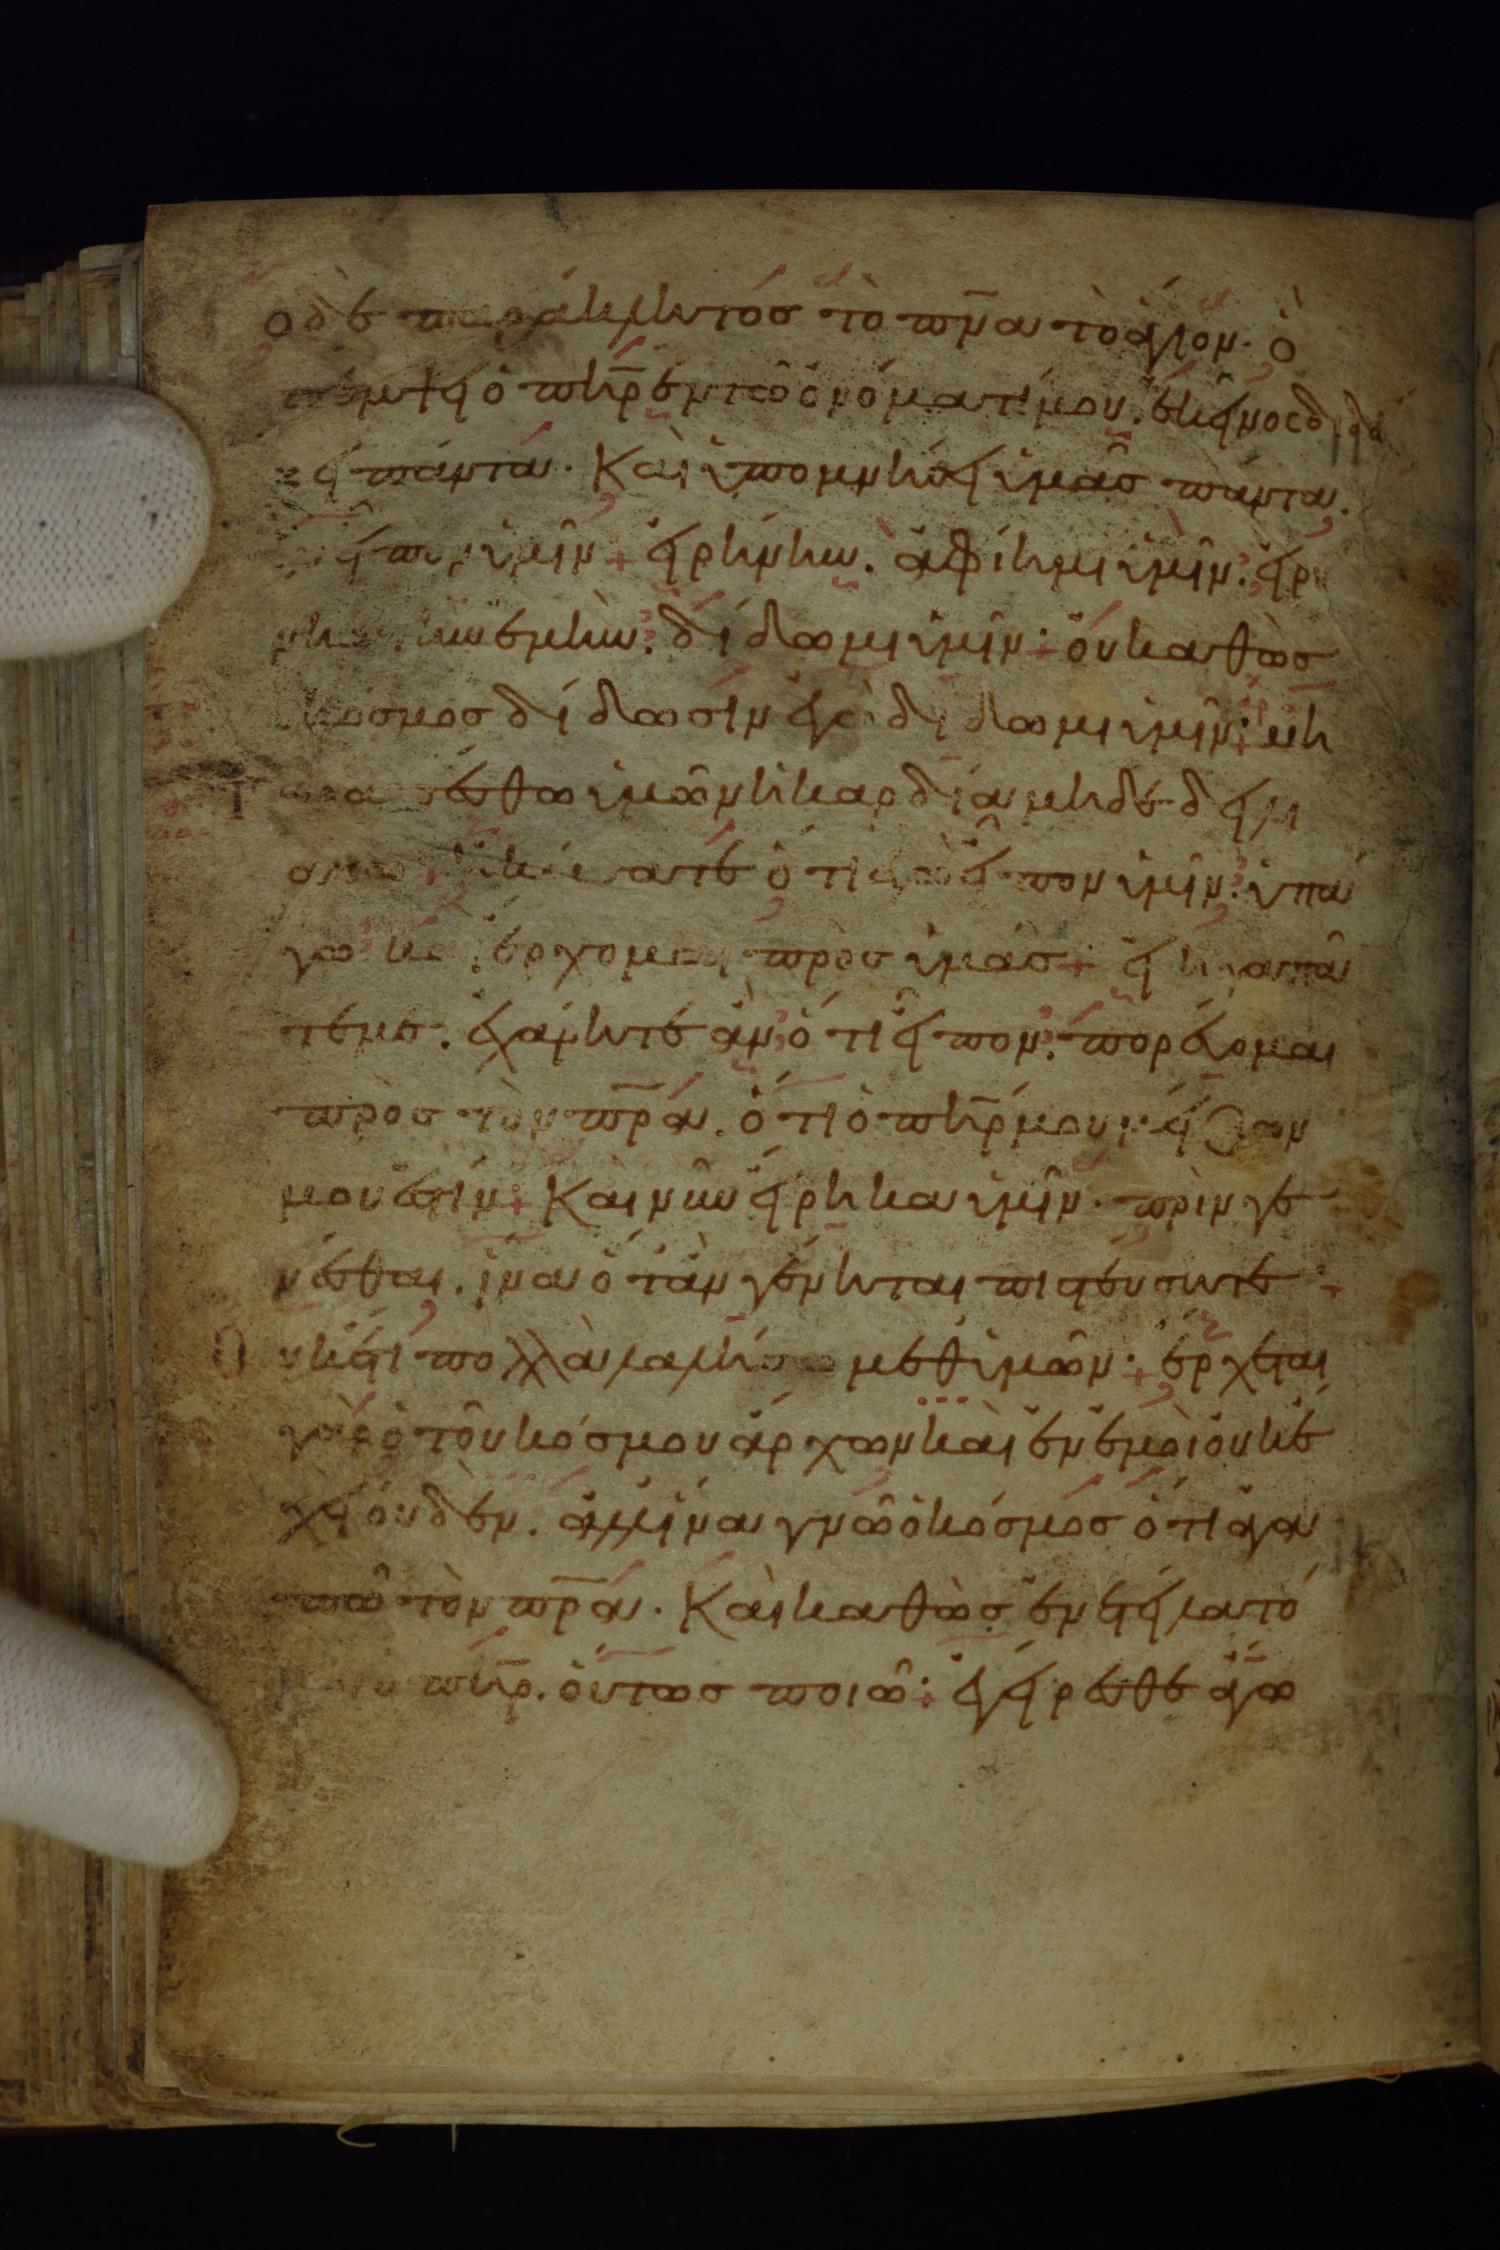 ὁ δὲ παράκλητος τὸ πν̅α τὸ ἅγιον. ὃ
πέμψει ὁ πη̅ρ ἐν τῶ ὀνόματί μου. ἐκεῖνος διδά
ξει πάντα. Καὶ ὑπομνήσει ὑμᾶς πάντα.
εἶπον ὑμῖν + εἰρήνην. ἀφίημι ὑμῖν: εἰρη
νην τὴν ἐμὴν: δίδωμι ὑμῖν + οὐ καθὼς
κόσμος δίδωσιν ἐγὼ δίδωμι ὑμῖν: μὴ
Τ ταρασσέσθω ὑμῶν ἡ καρδία μηδὲ δειλι
άτω + ἠκούσατε ὅτι ἐγὼ εἶπον ὑμῖν: ὑπά
γω καὶ ἔρχομαι πρὸς ὑμᾶς + εἰ ἠγαπᾶ
τέ με. ἐχάρητε ἂν ὅτι εἶπον: πορεύομαι
πρὸς τὸν πρ̅α. ὅτι ὁ πη̅ρ μου μείζων
μου ἐστίν + Καὶ νῦν εἴρηκα ὑμῖν. πρὶν γε
νέσθαι. ἵνα ὅταν γένηται πιστεύσητε +
Ο υκέτι πολλὰ λαλήσω μεθ ὑμῶν. + ἔρχεται
γὰρ ὁ τοῦ κόσμου ἄρχων καὶ ἐν ἐμοὶ οὐκ ἔ
χει οὐδέν. ἀλλ ἵνα γνῶ ὁ κόσμος ὅτι ἀγα
πῶ τὸν πρ̅α. Καὶ καθὼς ἐνετείλατό
μοι ὁ πη̅ρ. οὕτως ποιῶ: + ἐγείρεσθε ἄγω